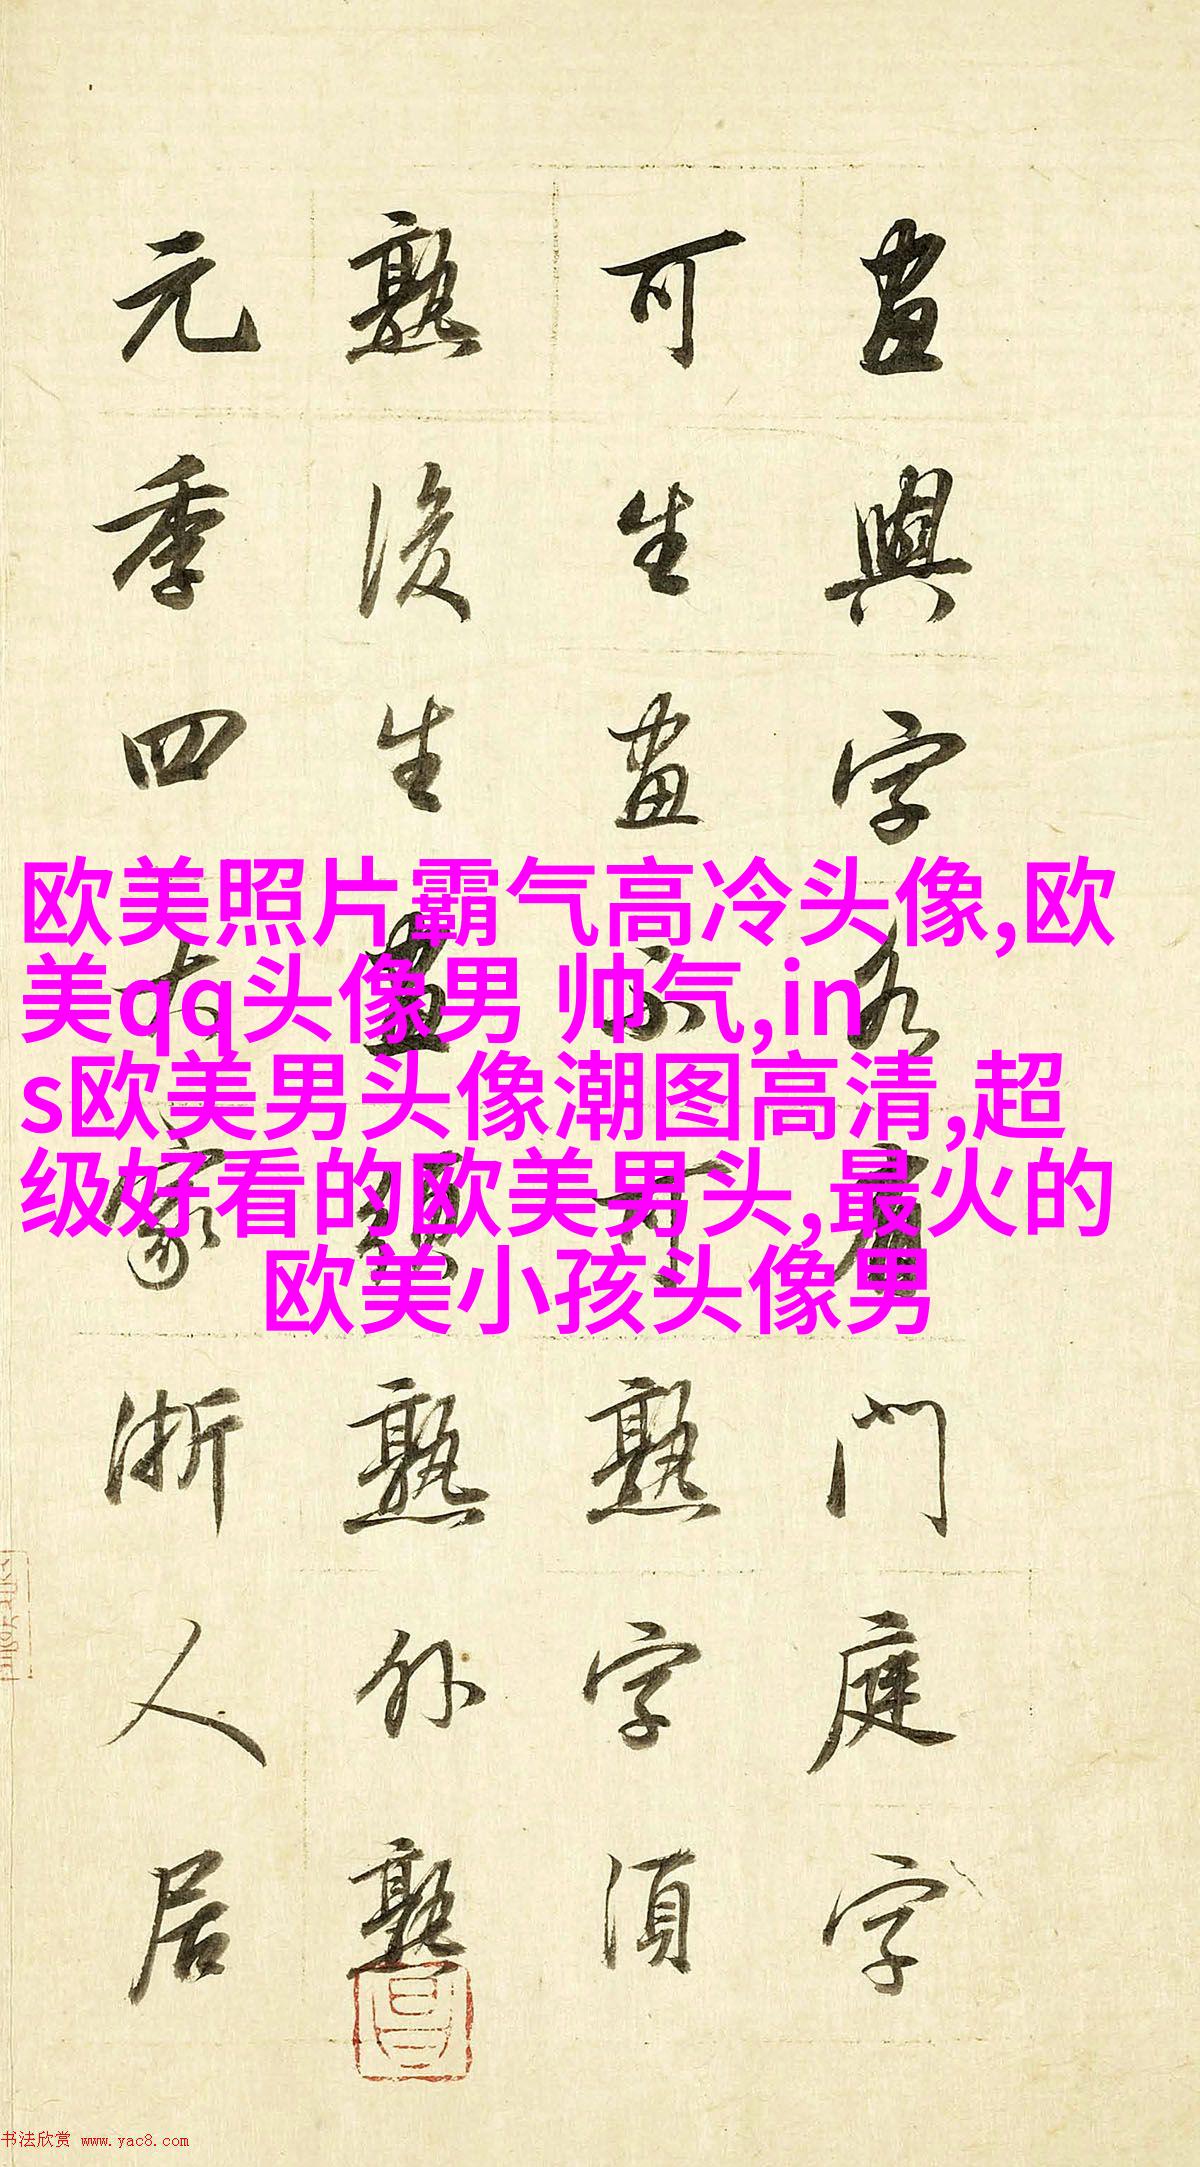 畫與字各有門庭字
可生畫不可熟字湏
熟後生畫須熟外熟
元季四大家浙人居
欧美照片霸气高冷头像,欧
美qq头像男 帅气,in
s欧美男头像潮图高清,超
级好看的欧美男头,最火的
欧美小孩头像男
书法欣赏 www.yac8.com